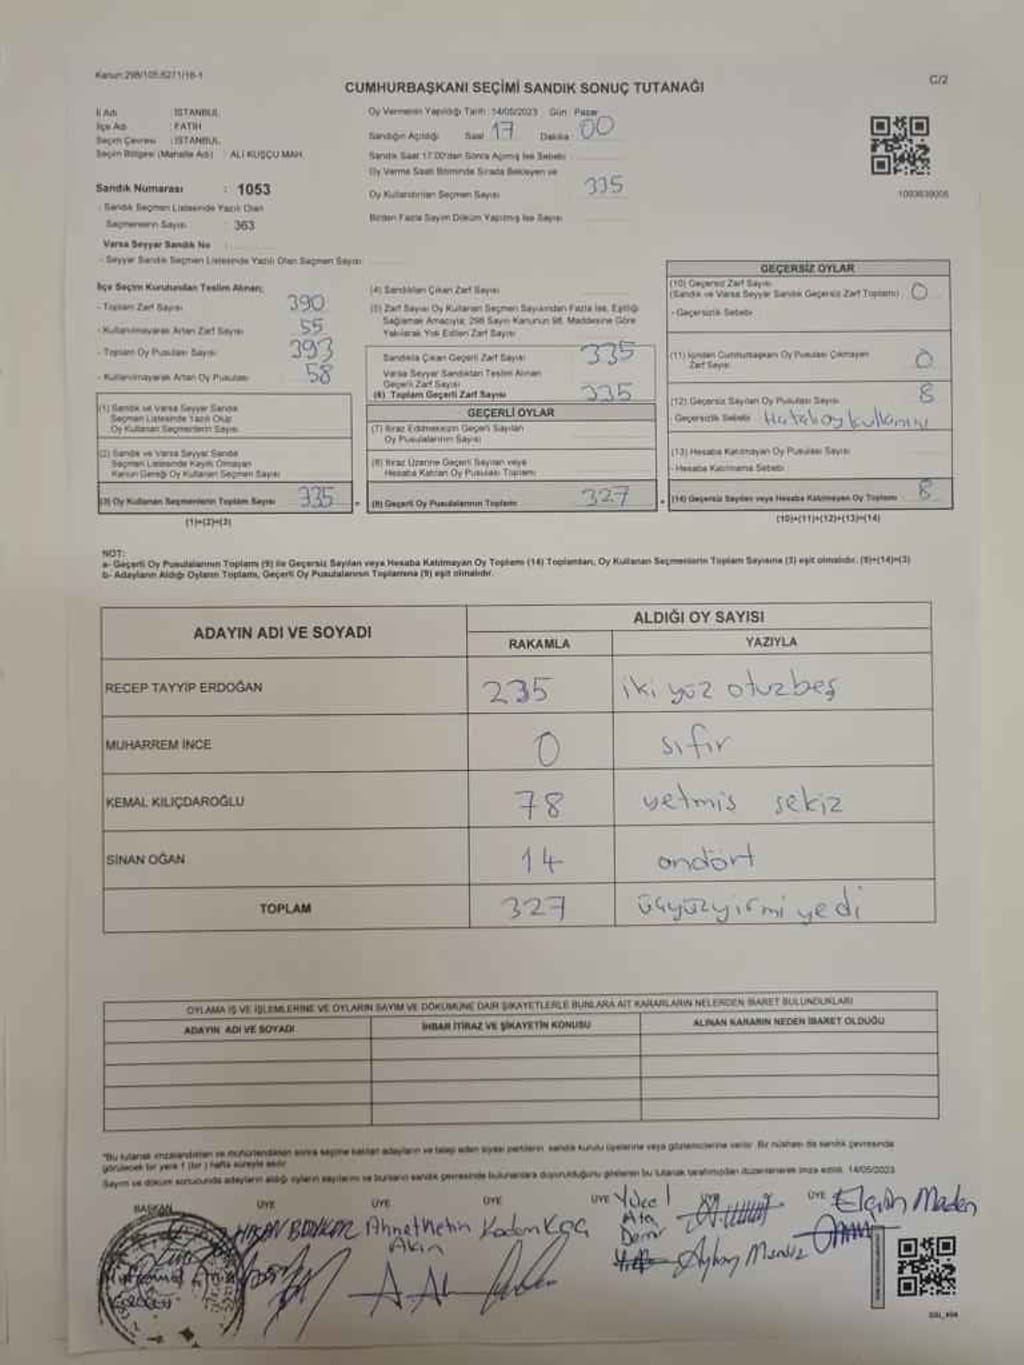 Kanun:298/105,6271/16-1
C/2
CUMHURBAŞKANI SEÇİMİ SANDIK SONUÇ TUTANAĞI
İl Adı : İSTANBUL
İlçe Adı : FATİH
Seçim Çevresi : İSTANBUL
Seçim Bölgesi (Mahalle Adı) : ALİ KUŞÇU MAH.
Sandık Numarası : 1053
- Sandık Seçmen Listesinde Yazılı Olan
Seçmenlerin Sayısı : 363
Varsa Seyyar Sandık No :
- Seyyar Sandık Seçmen Listesinde Yazılı Olan Seçmen Sayısı
Oy Vermenin Yapıldığı Tarih : 14/05/2023 Gün : Pazar
Sandığın Açıldığı Saat 17 Dakika : 00
Sandık Saat 17:00'dan Sonra Açılmış İse Sebebi
Oy Verme Saati Bitiminde Sırada Bekleyen ve
Oy Kullandırılan Seçmen Sayısı 335
Birden Fazla Sayım Döküm Yapılmış İse Sayısı
İlçe Seçim Kurulundan Teslim Alınan;
- Toplam Zarf Sayısı 390
- Kullanılmayarak Artan Zarf Sayısı 55
- Toplam Oy Pusulası Sayısı 393
- Kullanılmayarak Artan Oy Pusulası 58
(1) Sandık ve Varsa Seyyar Sandık
Seçmen Listesinde Yazılı Olup
Oy Kullanan Seçmenlerin Sayısı
(2) Sandık ve Varsa Seyyar Sandık
Seçmen Listesinde Kayıtlı Olmayan
Kanun Gereği Oy Kullanan Seçmen Sayısı
(3) Oy Kullanan Seçmenlerin Toplam Sayısı 335
(1)+(2)=(3)
(4) Sandıktan Çıkan Zarf Sayısı
(5) Zarf Sayısı Oy Kullanan Seçmen Sayısından Fazla İse, Eşitliği
Sağlamak Amacıyla; 298 Sayılı Kanunun 98. Maddesine Göre
Yakılarak Yok Edilen Zarf Sayısı
Sandıkta Çıkan Geçerli Zarf Sayısı 335
Varsa Seyyar Sandıktan Teslim Alınan
Geçerli Zarf Sayısı
(6) Toplam Geçerli Zarf Sayısı 335
GEÇERLİ OYLAR
(7) İtiraz Edilmeksizin Geçerli Sayılan
Oy Pusulalarının Sayısı
(8) İtiraz Üzerine Geçerli Sayılan veya
Hesaba Katılan Oy Pusulası Toplamı
(9) Geçerli Oy Pusulalarının Toplamı 327
GEÇERSİZ OYLAR
(10) Geçersiz Zarf Sayısı
(Sandık ve Varsa Seyyar Sandık Geçersiz Zarf Toplamı) 0
- Geçersizlik Sebebi
(11) İçinden Cumhurbaşkanı Oy Pusulası Çıkmayan
Zarf Sayısı 0
(12) Geçersiz Sayılan Oy Pusulası Sayısı 8
Geçersizlik Sebebi Hatalı oy kullanımı
(13) Hesaba Katılmayan Oy Pusulası Sayısı
- Hesaba Katılmama Sebebi
(14) Geçersiz Sayılan veya Hesaba Katılmayan Oy Toplamı 8
(10)+(11)+(12)+(13)=(14)
NOT:
a- Geçerli Oy Pusulalarının Toplamı (9) ile Geçersiz Sayılan veya Hesaba Katılmayan Oy Toplamı (14) Toplamları, Oy Kullanan Seçmenlerin Toplam Sayısına (3) eşit olmalıdır. (9)+(14)=(3)
b- Adayların Aldığı Oyların Toplamı, Geçerli Oy Pusulalarının Toplamına (9) eşit olmalıdır.
ADAYIN ADI VE SOYADI
ALDIĞI OY SAYISI
RAKAMLA YAZIYLA
RECEP TAYYİP ERDOĞAN 235 iki yüz otuzbeş
MUHARREM İNCE 0 sıfır
KEMAL KILIÇDAROĞLU 78 yetmis sekiz
SİNAN OĞAN 14 ondört
TOPLAM 327 üçyüzyirmi yedi
OYLAMA İŞ VE İŞLEMLERİNE VE OYLARIN SAYIM VE DÖKÜMÜNE DAİR ŞİKAYETLERLE BUNLARA AİT KARARLARIN NELERDEN İBARET BULUNDUKLARI
ADAYIN ADI VE SOYADI İHBAR İTİRAZ VE ŞİKAYETİN KONUSU ALINAN KARARIN NEDEN İBARET OLDUĞU
"Bu tutanak imzalandıktan ve mühürlendikten sonra seçime katılan adayların ve talep eden siyasi partilerin sandık kurulu üyelerine veya gözlemcilerine verilir. Bir nüshası da sandık çevresinde
görülecek bir yere 1 (bir) hafta süreyle asılır.
Sayım ve döküm sonucunda adayların aldığı oyların sayılarını ve bunların sandık çevresinde bulunanlara duyurulduğunu gösteren bu tutanak tarafımızdan düzenlenerek imza edildi. 14/05/2023
BAŞKAN ÜYE ÜYE ÜYE ÜYE ÜYE
Ahmet Metin
Akın
Yücel
Ata
Demir
Elçin Maden